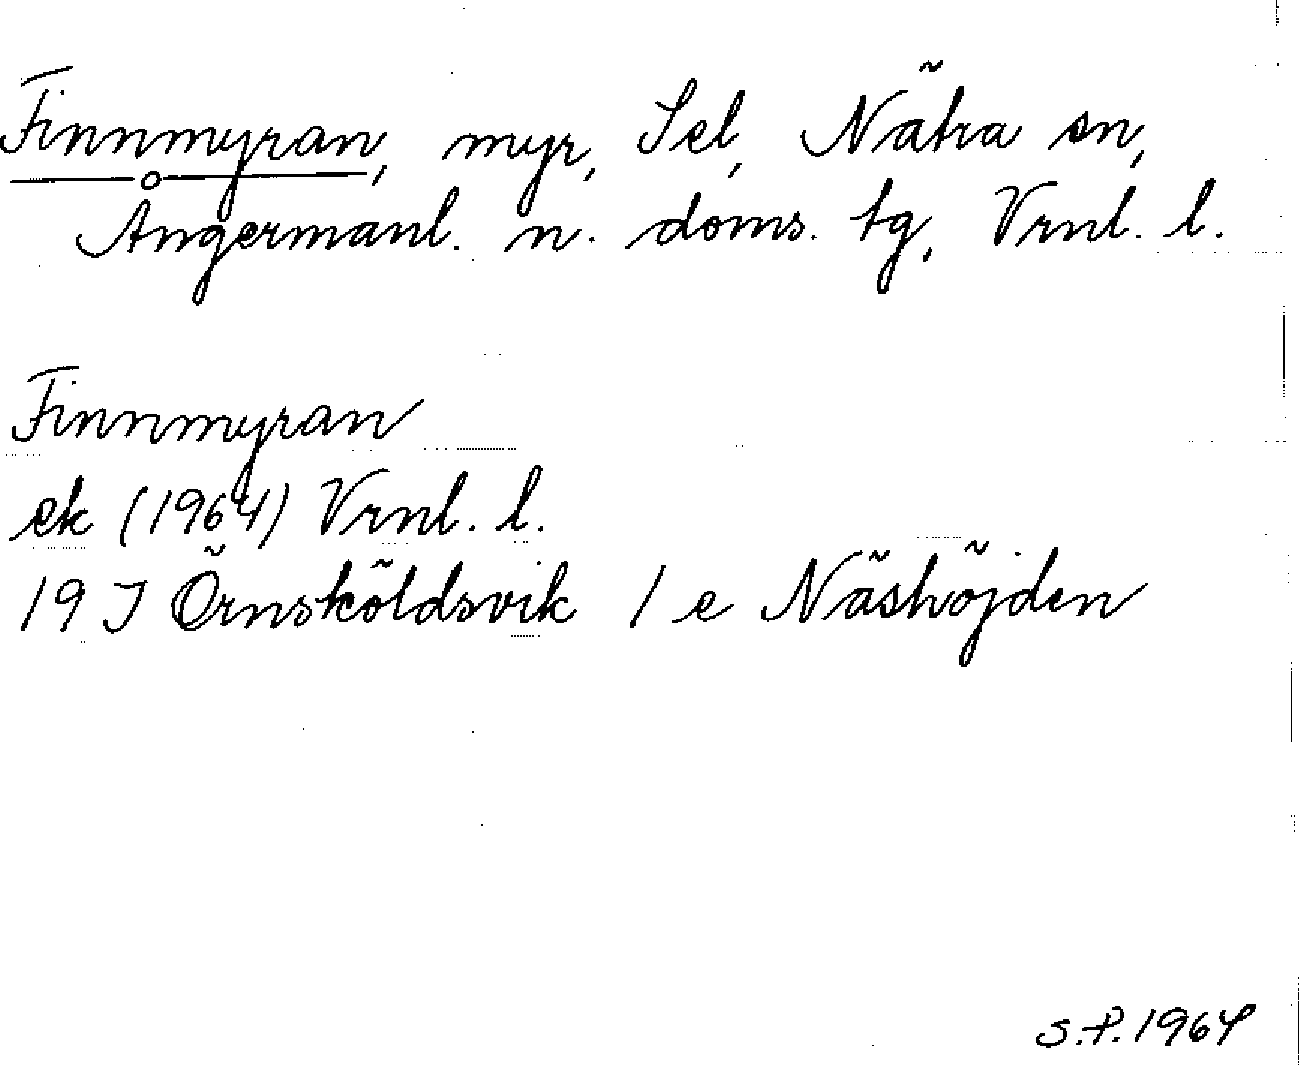 Finnmyran, myr, Sel, Nätra sn,
Ångermanl. n. doms. tg, Vrnl. l.
Finnmyran
ek (1964) Vrnl. l.
19 J Örnsköldsvik 1 e Näshöjden
S.P. 1964